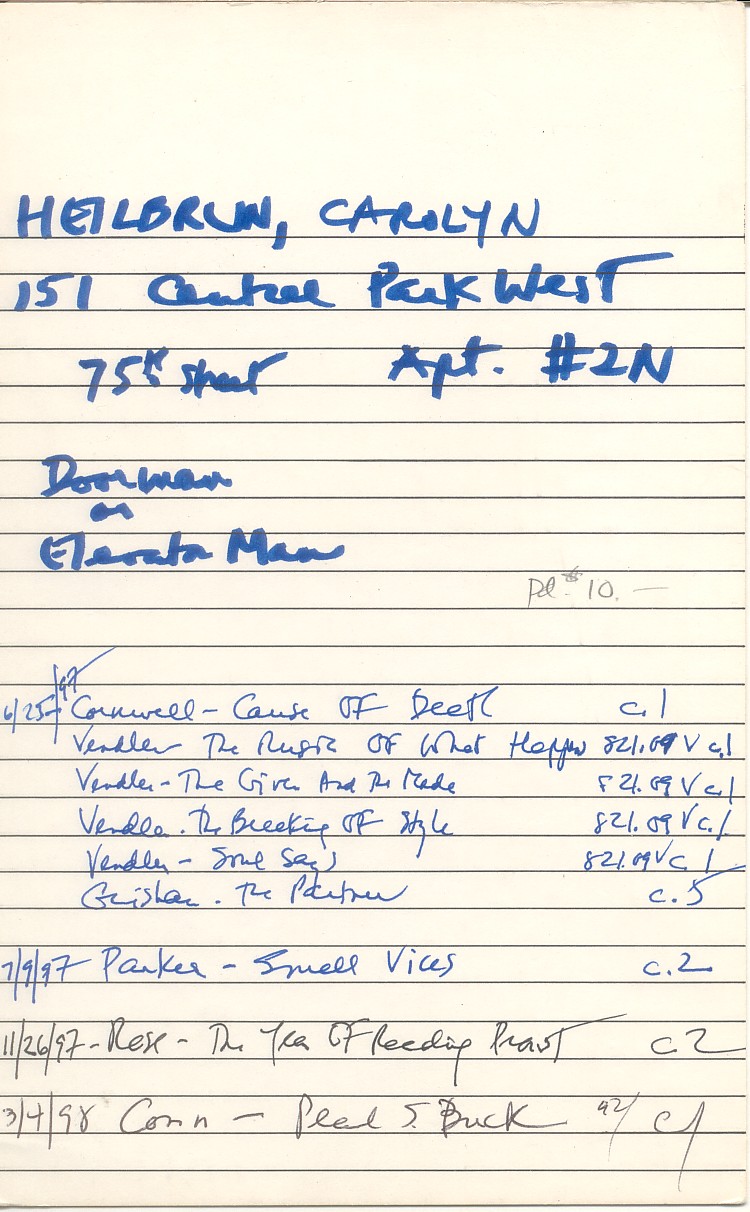 HEILBRUN, CAROLYN
151 Central Park West
75th Street Apt. #2N
Doorman
or
Elevator Man
Pd. $10.—
6/25/97 Cornwell - Cause Of Death c.1
Vendler The Music Of What Happens 821.09 V c.1
Vendler - The Given And The Made 821.09 V c.1
Vendler. The Breaking Of Style 821.09 V c.1
Vendler - Soul Says 821.09 V c 1
Grisham. The Partner c.5
7/9/97 Parker - Small Vices c.2
11/26/97 - Rose - The Year Of Reading Proust c 2
3/4/98 Conn - Pearl S. Buck 92/ c1